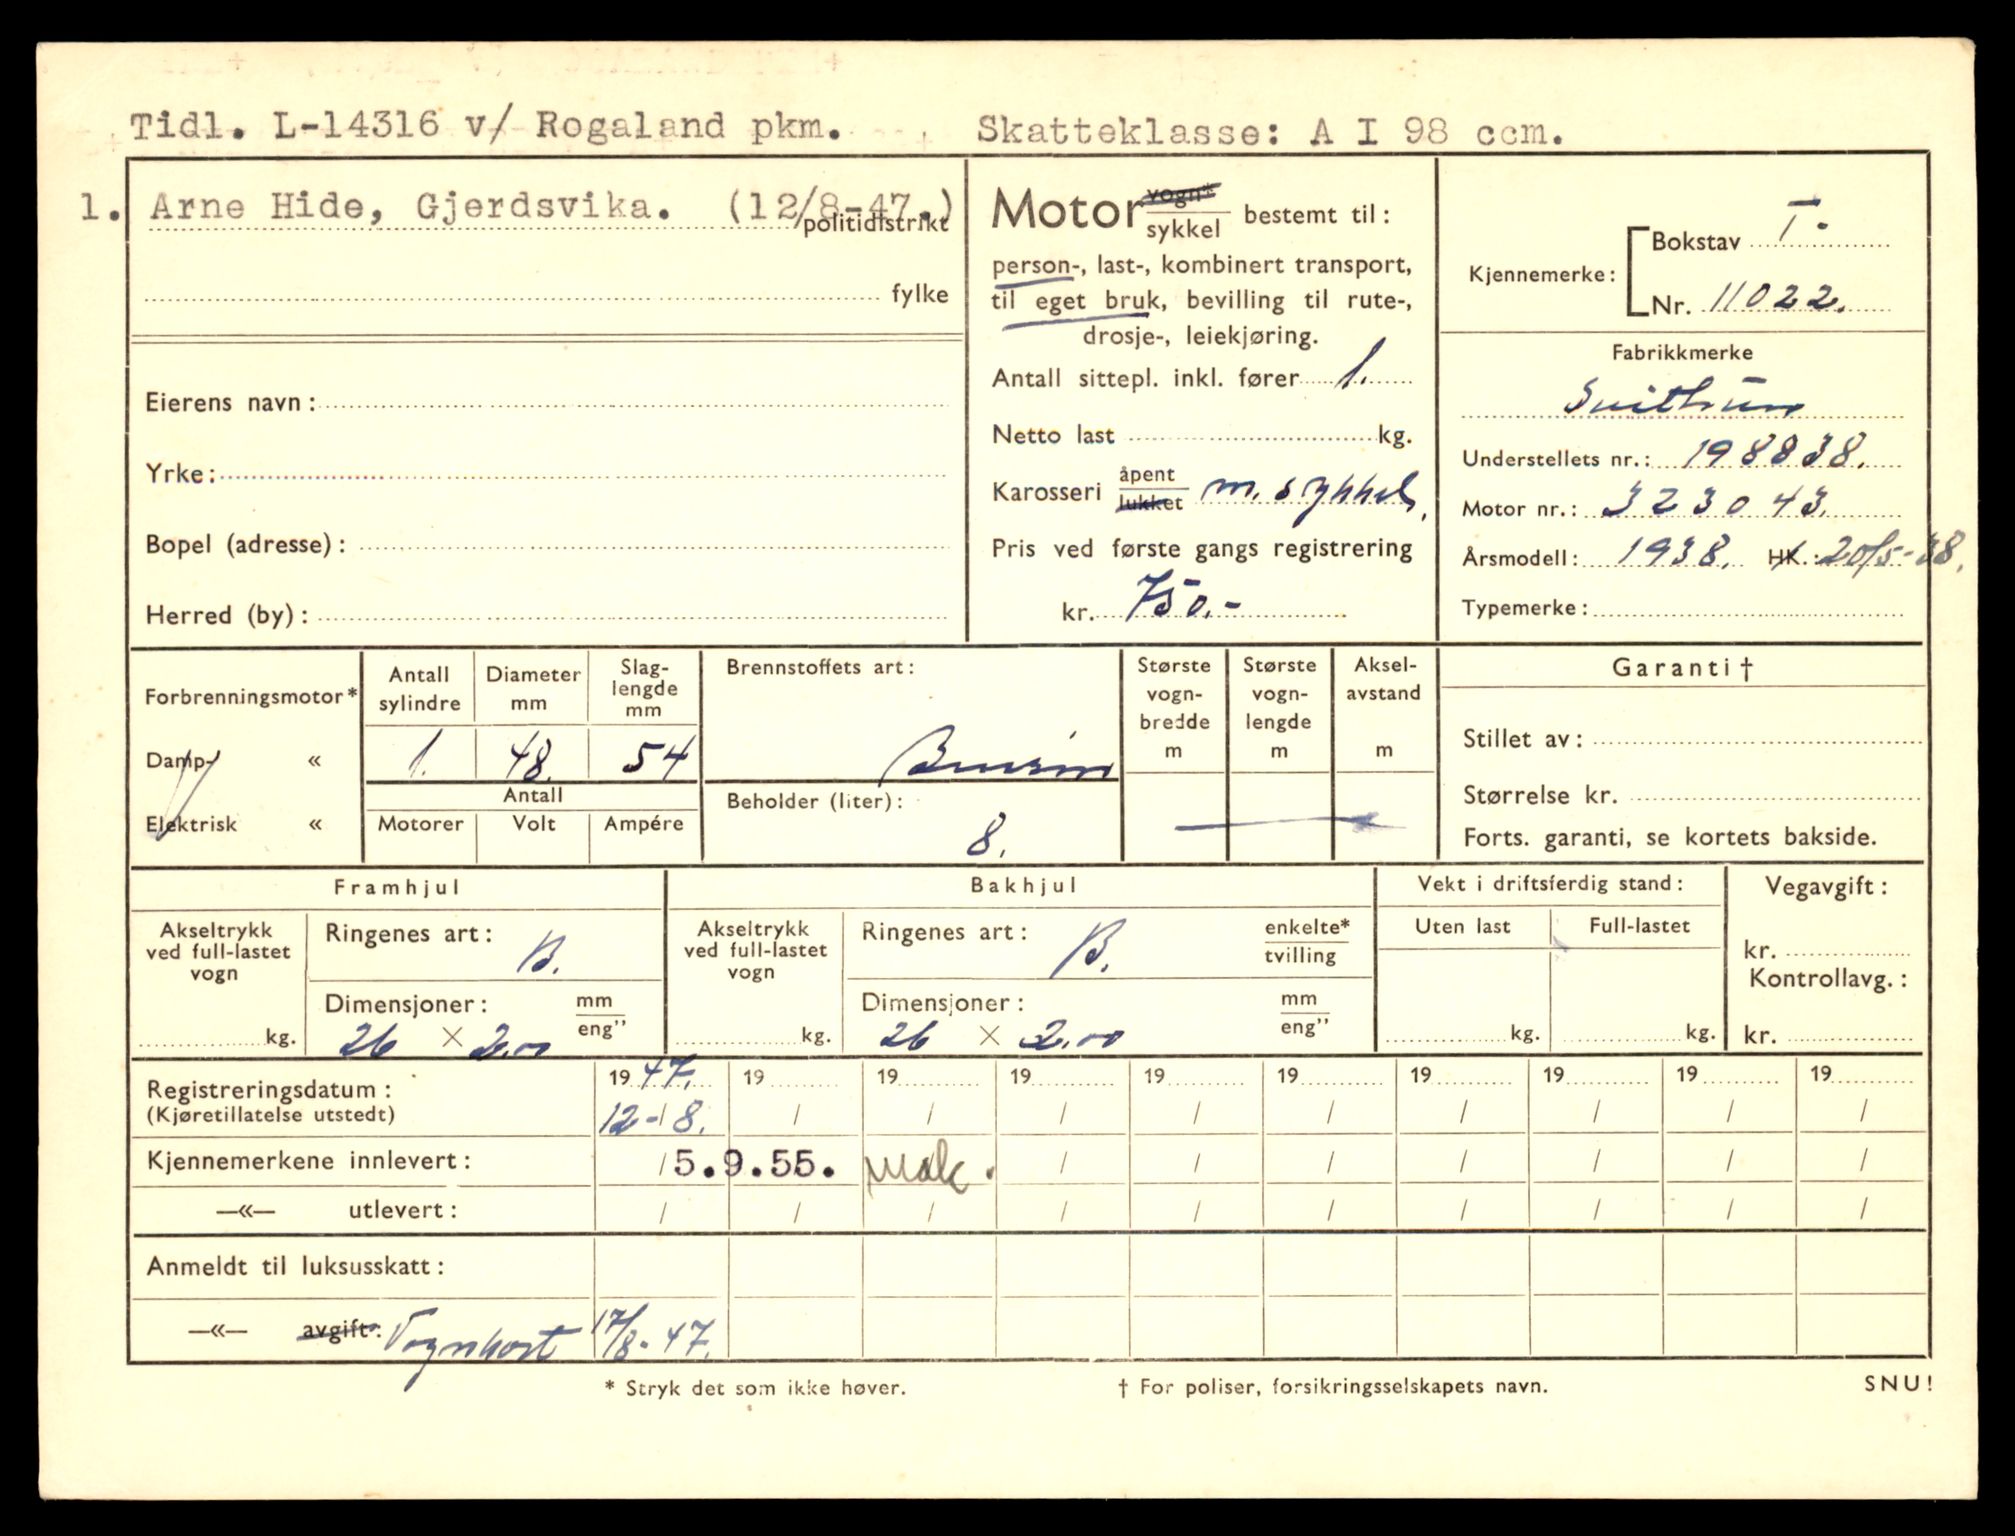 Tidl. L-14316 v/ Rogaland pkm. Skatteklasse: A I 98 ccm.
1. Arne Hide, Gjerdsvika. (12/8-47.)
politidistrikt
fylke
Eierens navn:
Yrke:
Bopel (adresse):
Herred (by):
Motor vogn* sykkel bestemt til:
person-, last-, kombinert transport,
til eget bruk, bevilling til rute-,
drosje-, leiekjøring.
Antall sittepl. inkl. fører 1.
Netto last kg.
Karosseri åpent lukket m. sykkel
Pris ved første gangs registrering
kr. 750.-
Kjennemerke: Bokstav T.
Nr. 11022.
Fabrikkmerke
Understellets nr.: 198838.
Motor nr.: 323043.
Årsmodell: 1938. HK.: 20/5-38.
Typemerke:
Forbrenningsmotor*
Damp- «
Elektrisk «
Antall sylindre
Diameter mm
Slaglengde mm
1. 48. 54
Antall
Motorer Volt Ampére
Brennstoffets art:
Bensin
Beholder (liter):
8.
Største vognbredde m
Største vognlengde m
Akselavstand m
Garanti †
Stillet av:
Størrelse kr.
Forts. garanti, se kortets bakside.
Framhjul
Akseltrykk ved full-lastet vogn
kg.
Ringenes art: B.
Dimensjoner: mm eng”
26 × 2.00
Bakhjul
Akseltrykk ved full-lastet vogn
kg.
Ringenes art: B. enkelte* tvilling
Dimensjoner: mm eng”
26 × 2.00
Vekt i driftsferdig stand:
Uten last Full-lastet
kg. kg.
Vegavgift:
kr.
Kontrollavg.:
kr.
Registreringsdatum: 1947. 19 19 19 19 19 19 19 19 19
(Kjøretillatelse utstedt) 12-8. / / / / / / / / /
Kjennemerkene innlevert: / 5.9.55. mak. / / / / / / /
—«— utlevert: / / / / / / / / / /
Anmeldt til luksusskatt:
—«— avgift: Vognkort 17/8-47.
* Stryk det som ikke høver. † For poliser, forsikringsselskapets navn. SNU!